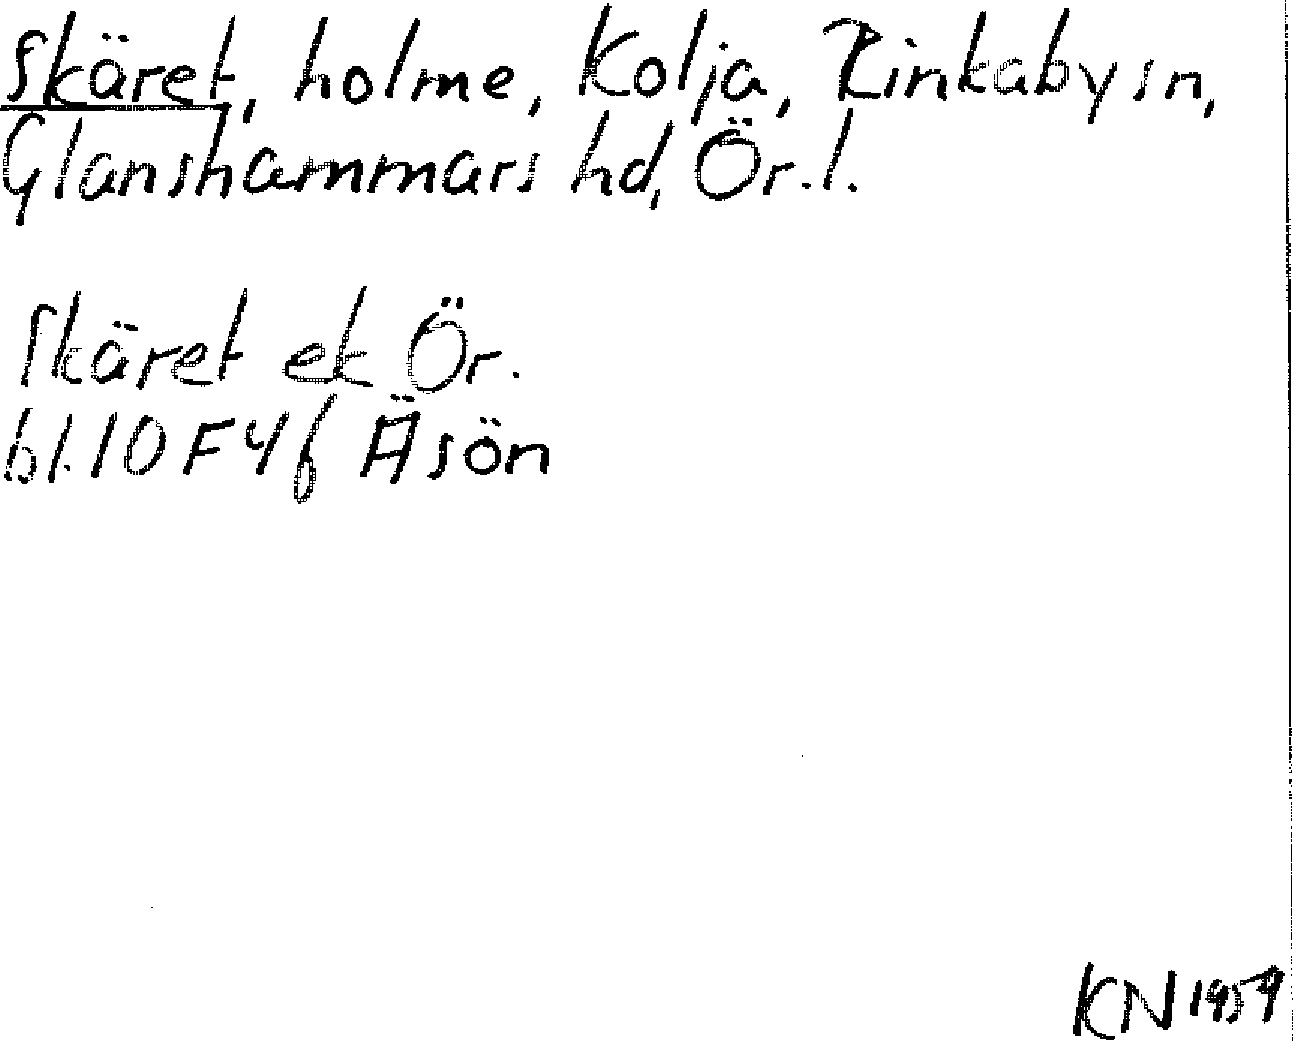 Skäret, holme, Kolja, Rinkaby sn,
Glanshammars hd, Ör. l.
Skäret ek Ör.
bl. 10 F 4 f Äsön
KN 1959